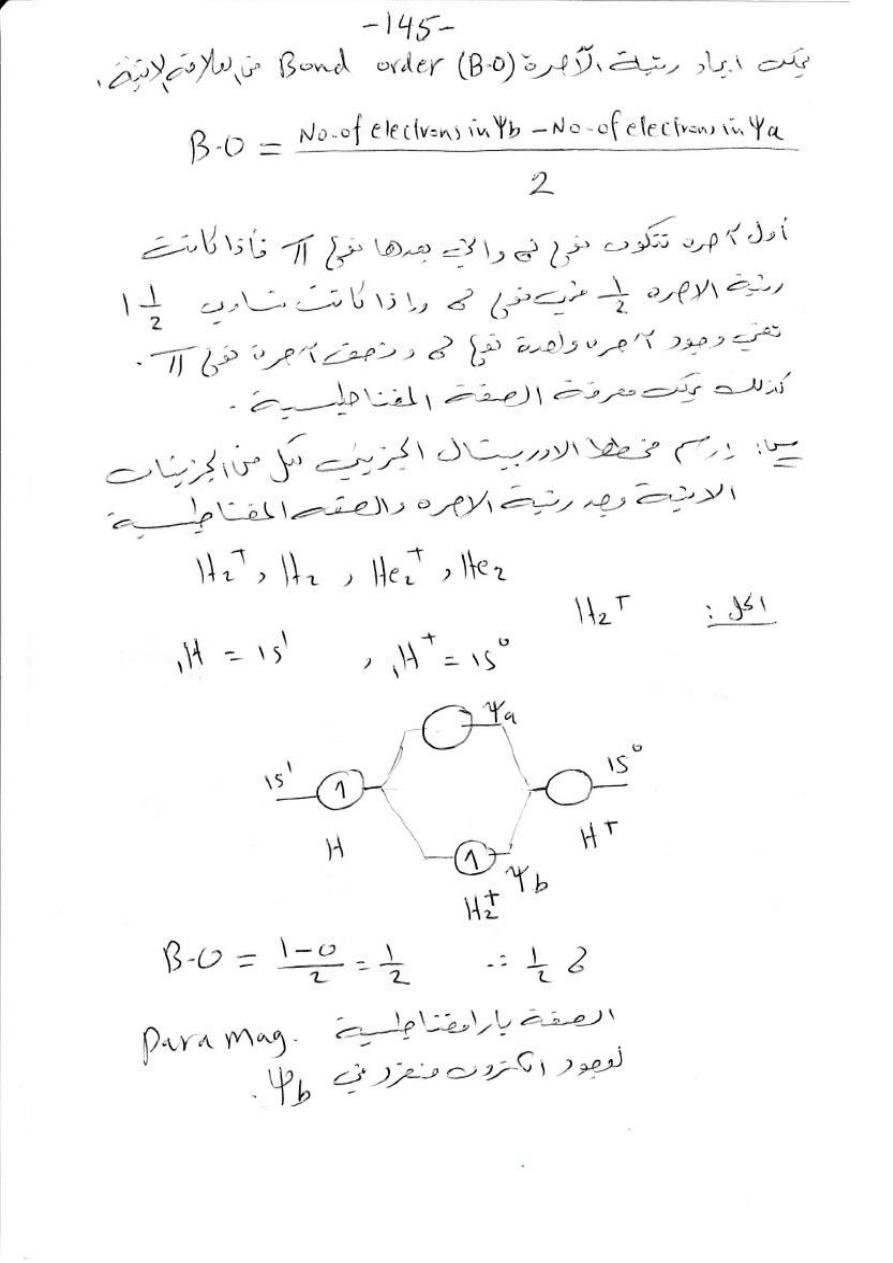 -145-
يمكن ايجاد رتبة الآصرة Bond order (B.O) من العلاقة الاتية.
B.O = No. of electrons in Ψb - No. of electrons in Ψa / 2
أول آصرة تتكون نوع σ والتي بعدها نوع π فأذا كانت
رتبة الاصره 1/2 فهي نوع σ واذا كانت تساوي 1 1/2
تعني وجود آصره واحدة نوع σ ونصف آصرة نوع π.
كذلك يمكن معرفة الصفة المغناطيسية.
س: إرسم مخطط الاوربيتال الجزيئي لكل من الجزيئات
الاتية وجد رتبة الاصره والصفه المغناطيسية
H₂⁺, H₂, He₂⁺, He₂
الحل: H₂⁺
₁H = 1s¹ , ₁H⁺ = 1s⁰
Ψa
1s¹ 1 1s⁰
H H⁺
1 Ψb
H₂⁺
B.O = 1-0 / 2 = 1/2 ∴ 1/2 σ
الصفة بارامغناطيسية Para mag.
لوجود الكترون منفرد في Ψb.